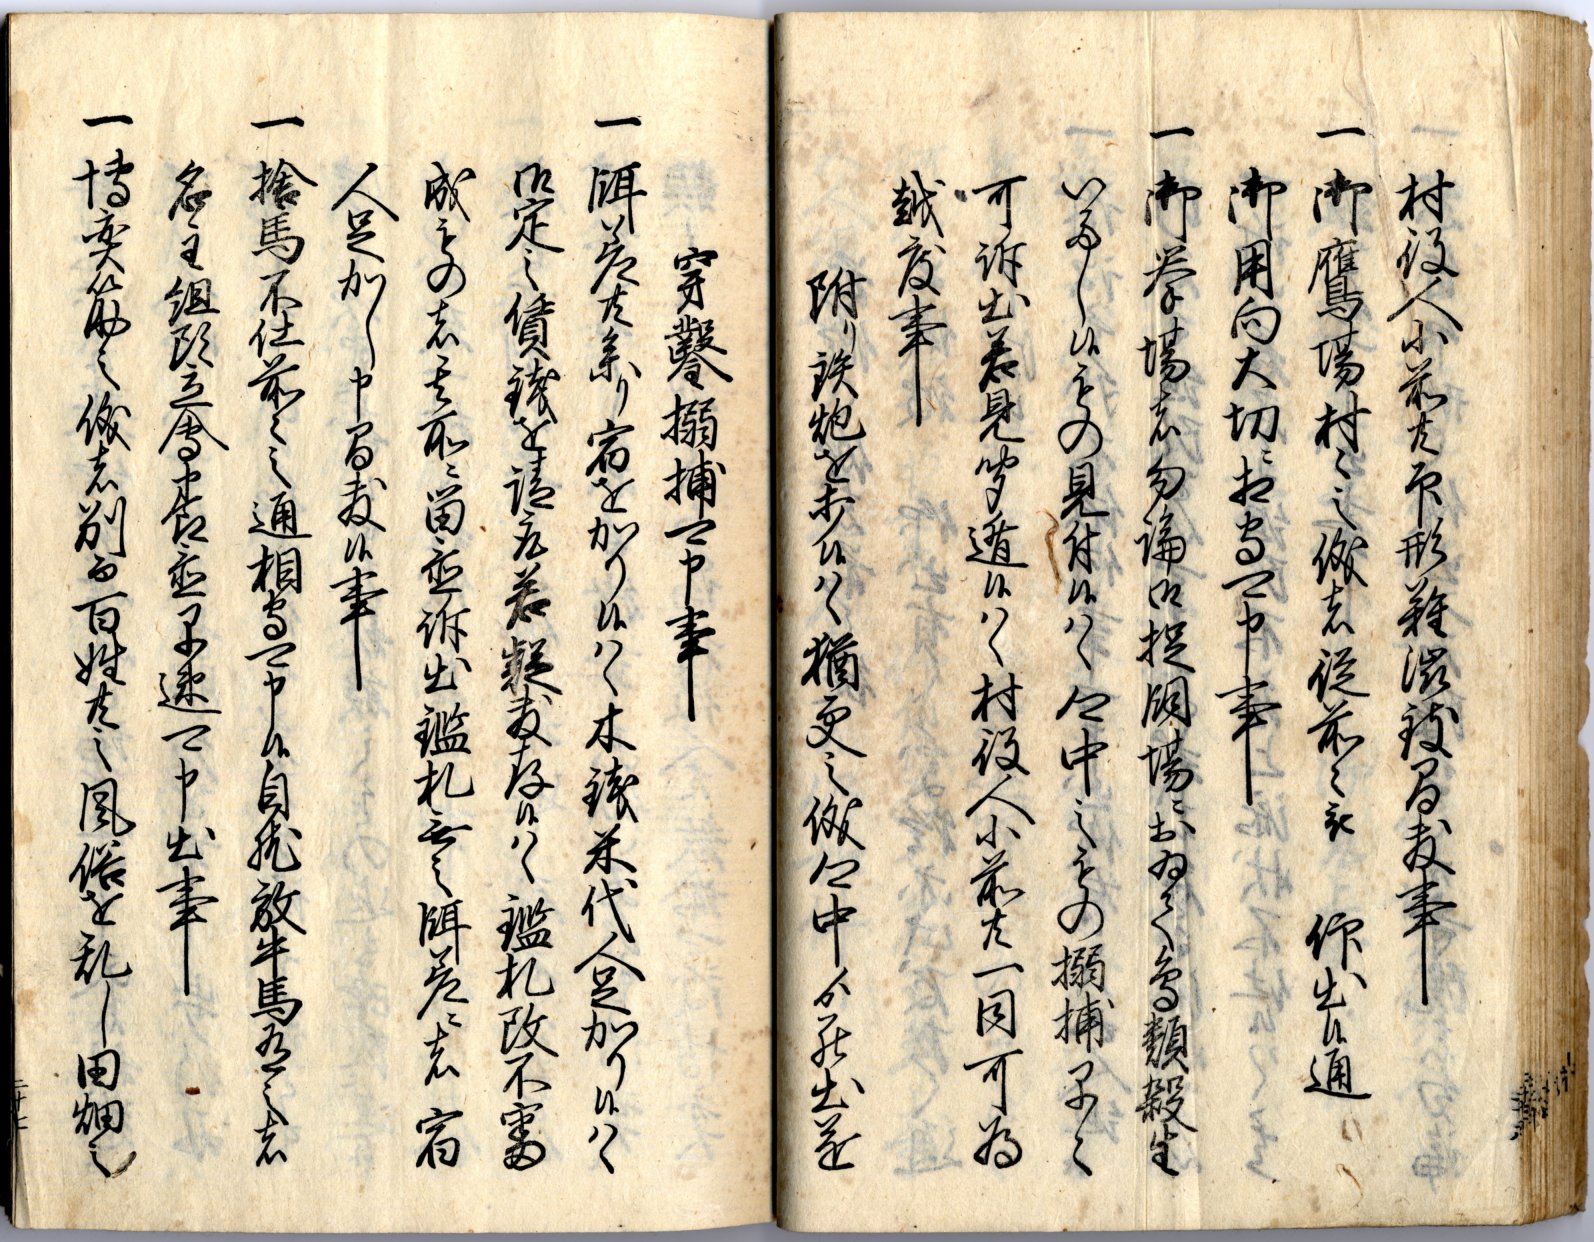 村役人小前共印形難渋致間敷事
一御鷹場村々之儀者従前々被 仰出候通
御用向大切ニ相守可申事
一御拳場者勿論御捉飼場ニおゐて鳥類殺生
いたし候もの見付候ハヽ
中之もの搦捕早々
可訴出若見
遁候ハヽ村役人小前共一同可為
越度事
附り鉄炮を
候ハヽ猶更之儀
中
罷出
穿鑿搦捕可申事
一餌差共参り宿を かり候ハヽ木銭米代人足かり候ハヽ
御定之賃銭を請取若疑敷存候ハヽ鑑札改不審
成もの者其所ニ留置訴出鑑札無之餌差ニ者宿
人足かし申間敷候事
一捨馬不仕前々之通相守可申候自然放牛馬有之者
名主組頭立会
置早速可申出事
一博奕筋之儀者別而百姓共之風俗を乱し田畑之